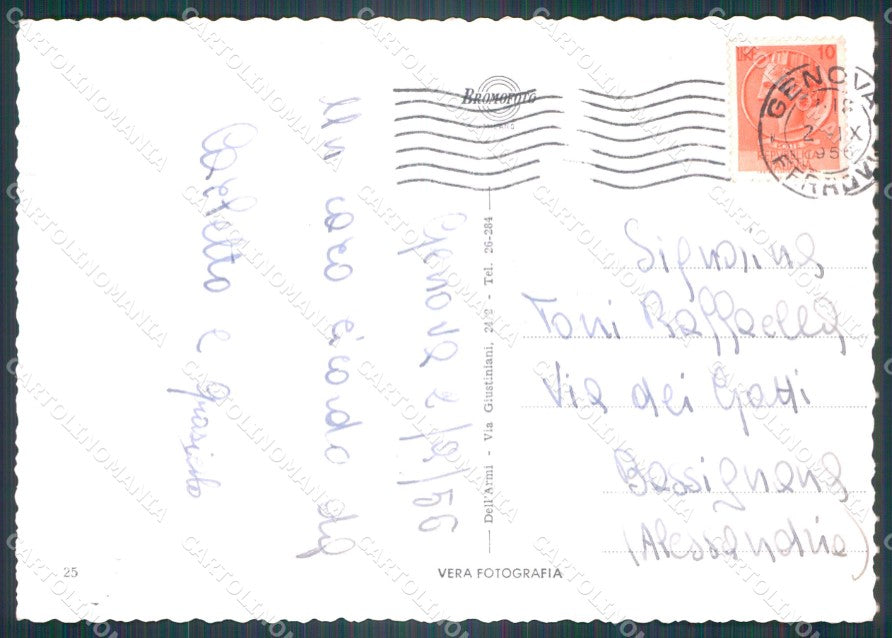 BROMOFOTO
LIRE 10
GENOVA
FERROVIA
1956
Genova 2/9/56
Un caro ricordo da
Carletto e
Signorina
Toni Raffaella
Via dei Gatti
Bassignana
(Alessandria)
Dell'Armi - Via Giustiniani, 24/2 - Tel. 26-284
VERA FOTOGRAFIA
25
CARTOLINOMANIA